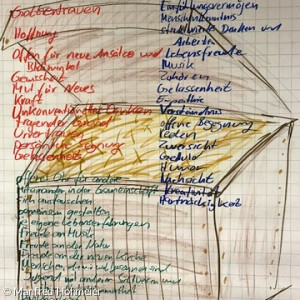 Gottvertrauen
Hoffnung
Offen für neue Ansätze und
Gewissheit
Mut für Neues
Kraft
Unkonventionelles Denken
Tragender Grund
Urvertrauen
persönliche Segnung
Gelassenheit
Einfühlungsvermögen
Menschenkenntnis
strukturiertes Denken und
Arbeiten
Lebensfreude
Musik
Zuhören
Gelassenheit
Empathie
Verständnis
offene Begegnung
reden
Zuversicht
Geduld
Humor
Nachsicht
Kreativität
Hartnäckigkeit
offenes Ohr für andere
Miteinander in der Gemeinschaft
sich austauschen
gemeinsam gestalten
eigene Lebenserfahrungen
Freude an Musik
Freude an der Natur
Freude an der neuen Kirche
Menschen
und anderen Kulturen und
© Manfred